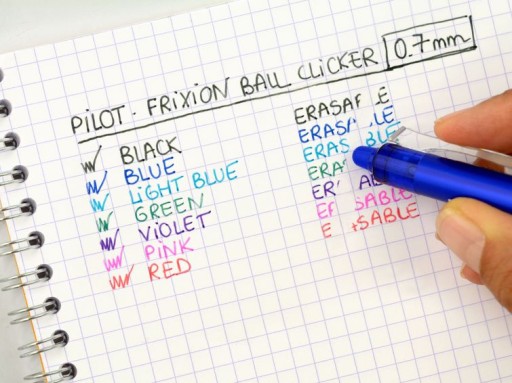 PILOT. FRIXION BALL CLICKER 0.7mm
BLACK
BLUE
LIGHT BLUE
GREEN
VIOLET
PINK
RED
ERASA E
ERAS LE
ERAS BLE
ERA
ER AB
ER SABLE
E SABLE